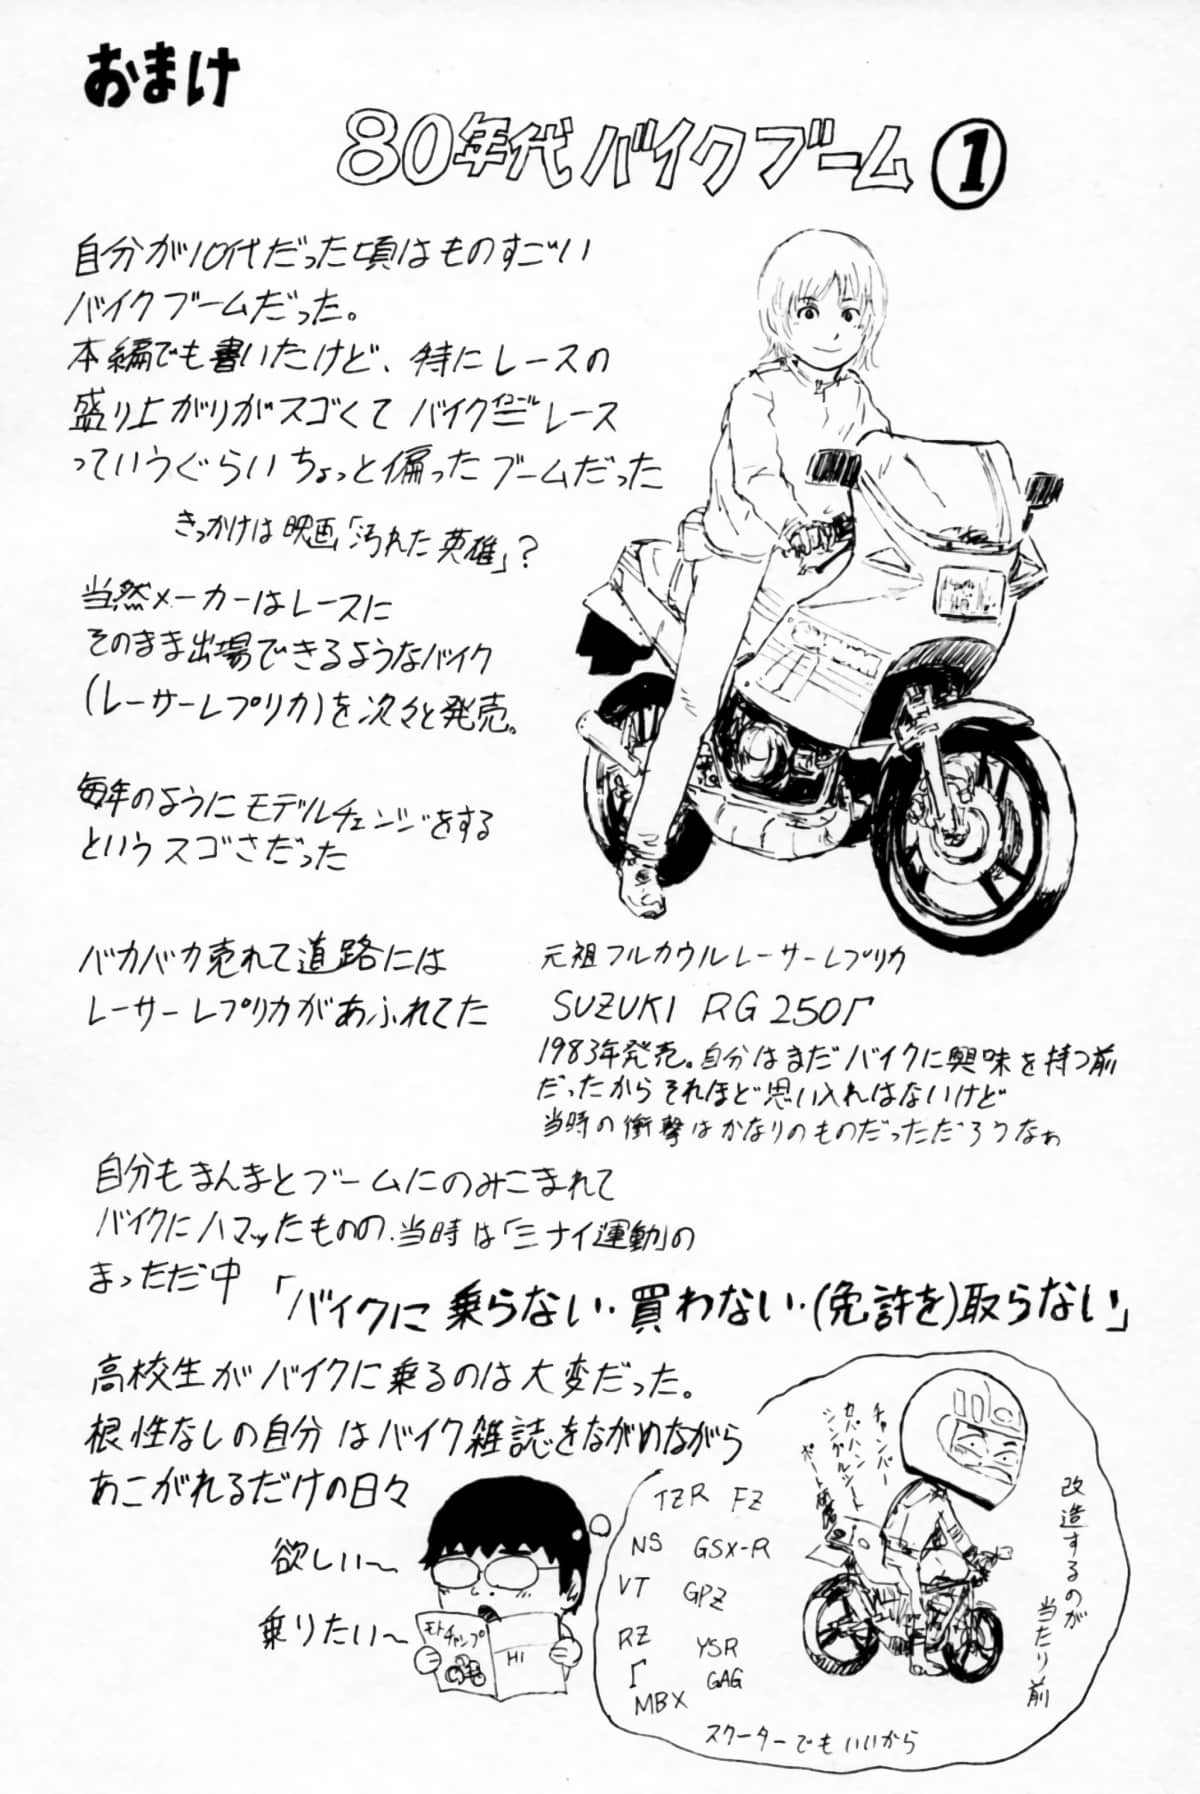 おまけ
80年代バイクブーム①
自分が10代だった頃はものすごい
バイクブームだった。
本編でも書いたけど、特にレースの
盛り上がりがスゴくてバイク=レース
イコール
っていうぐらいちょっと偏ったブームだった
きっかけは映画「汚れた英雄」?
当然メーカーはレースに
そのまま出場できるようなバイク
(レーサーレプリカ)を次々と発売。
毎年のようにモデルチェンジをする
というスゴさだった
バカバカ売れて道路には
レーサーレプリカがあふれてた
元祖フルカウルレーサーレプリカ
SUZUKI RG250Γ
1983年発売。自分はまだバイクに興味を持つ前
だったからそれほど思い入れはないけど
当時の衝撃はかなりのものだっただろうなぁ
自分もまんまとブームにのみこまれて
バイクにハマッたものの、当時は「三ナイ運動」の
まっただ中
「バイクに乗らない・買わない・(免許を)取らない」
高校生がバイクに乗るのは大変だった。
根性なしの自分はバイク雑誌をながめながら
あこがれるだけの日々
欲しい〜
乗りたい〜
モトチャンプ
HI
TZR FZ
NS GSX-R
VT GPZ
RZ YSR
Γ GAG
MBX
スクーターでもいいから
チャンバー
セパハン
シングルシート
ポート研磨
改造するのが
当たり前